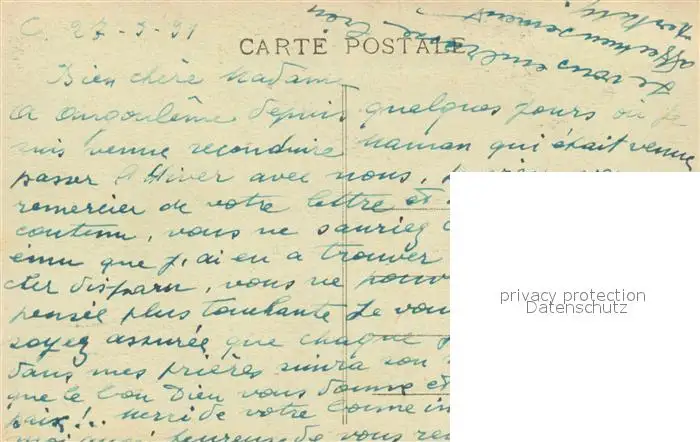 C. 27-3-31
CARTE POSTALE
Bien chère Madame
A Angoulême depuis quelques jours où je
suis venue reconduire Maman qui était venue
passer l'Hiver avec nous,
remercier de votre lettre et
contenu, vous ne sauriez
ému que j'ai eu a trouver
cher disparu, vous ne pouv
pensée plus touchante Je vous
soyez assurée que chaque
dans mes prières suivra son
que le bon Dieu vous donne et
paix!.. Merci de votre bonne in
moi aussi heureuse de vous
Je vous embrasse
affectueusement
privacy protection
Datenschutz